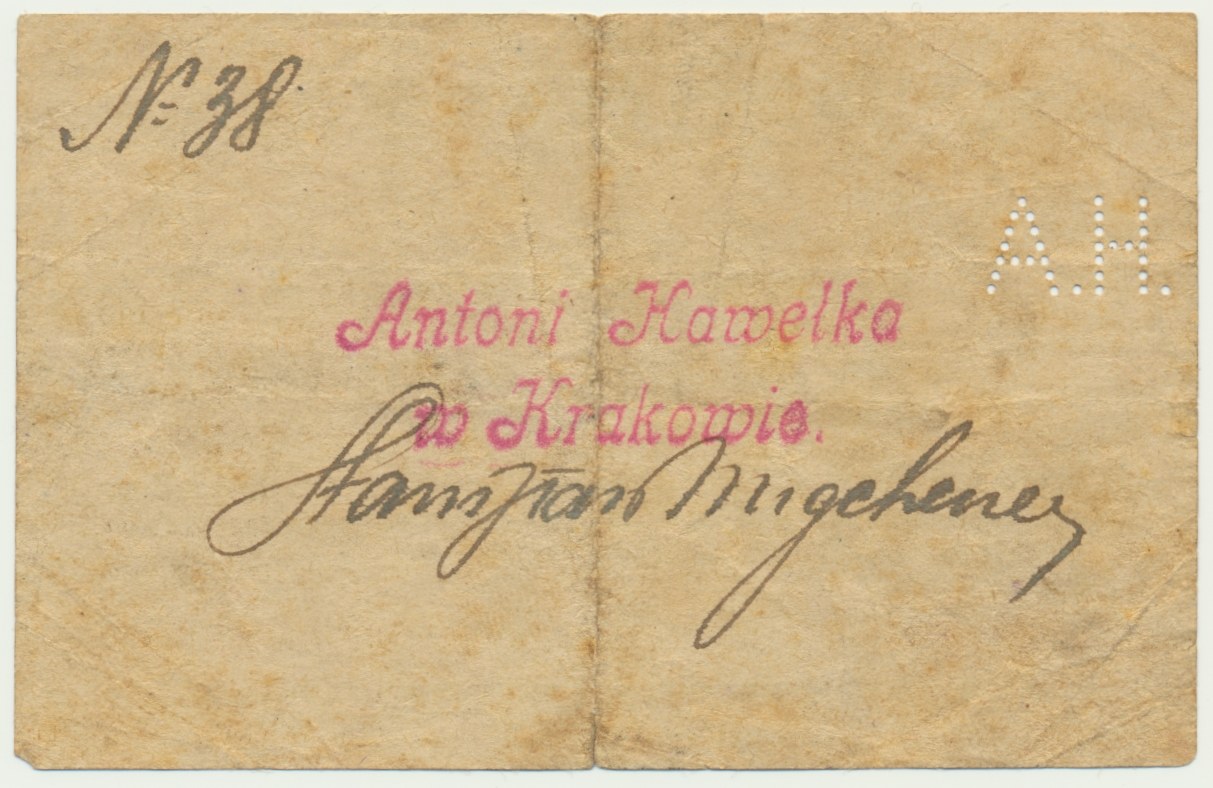 № 38
A.H.
Antoni Hawełka
w Krakowie.
Stanisław